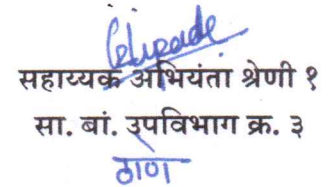 सहाय्यक अभियंता श्रेणी १
सा. बां. उपविभाग क्र. ३
ठाणे